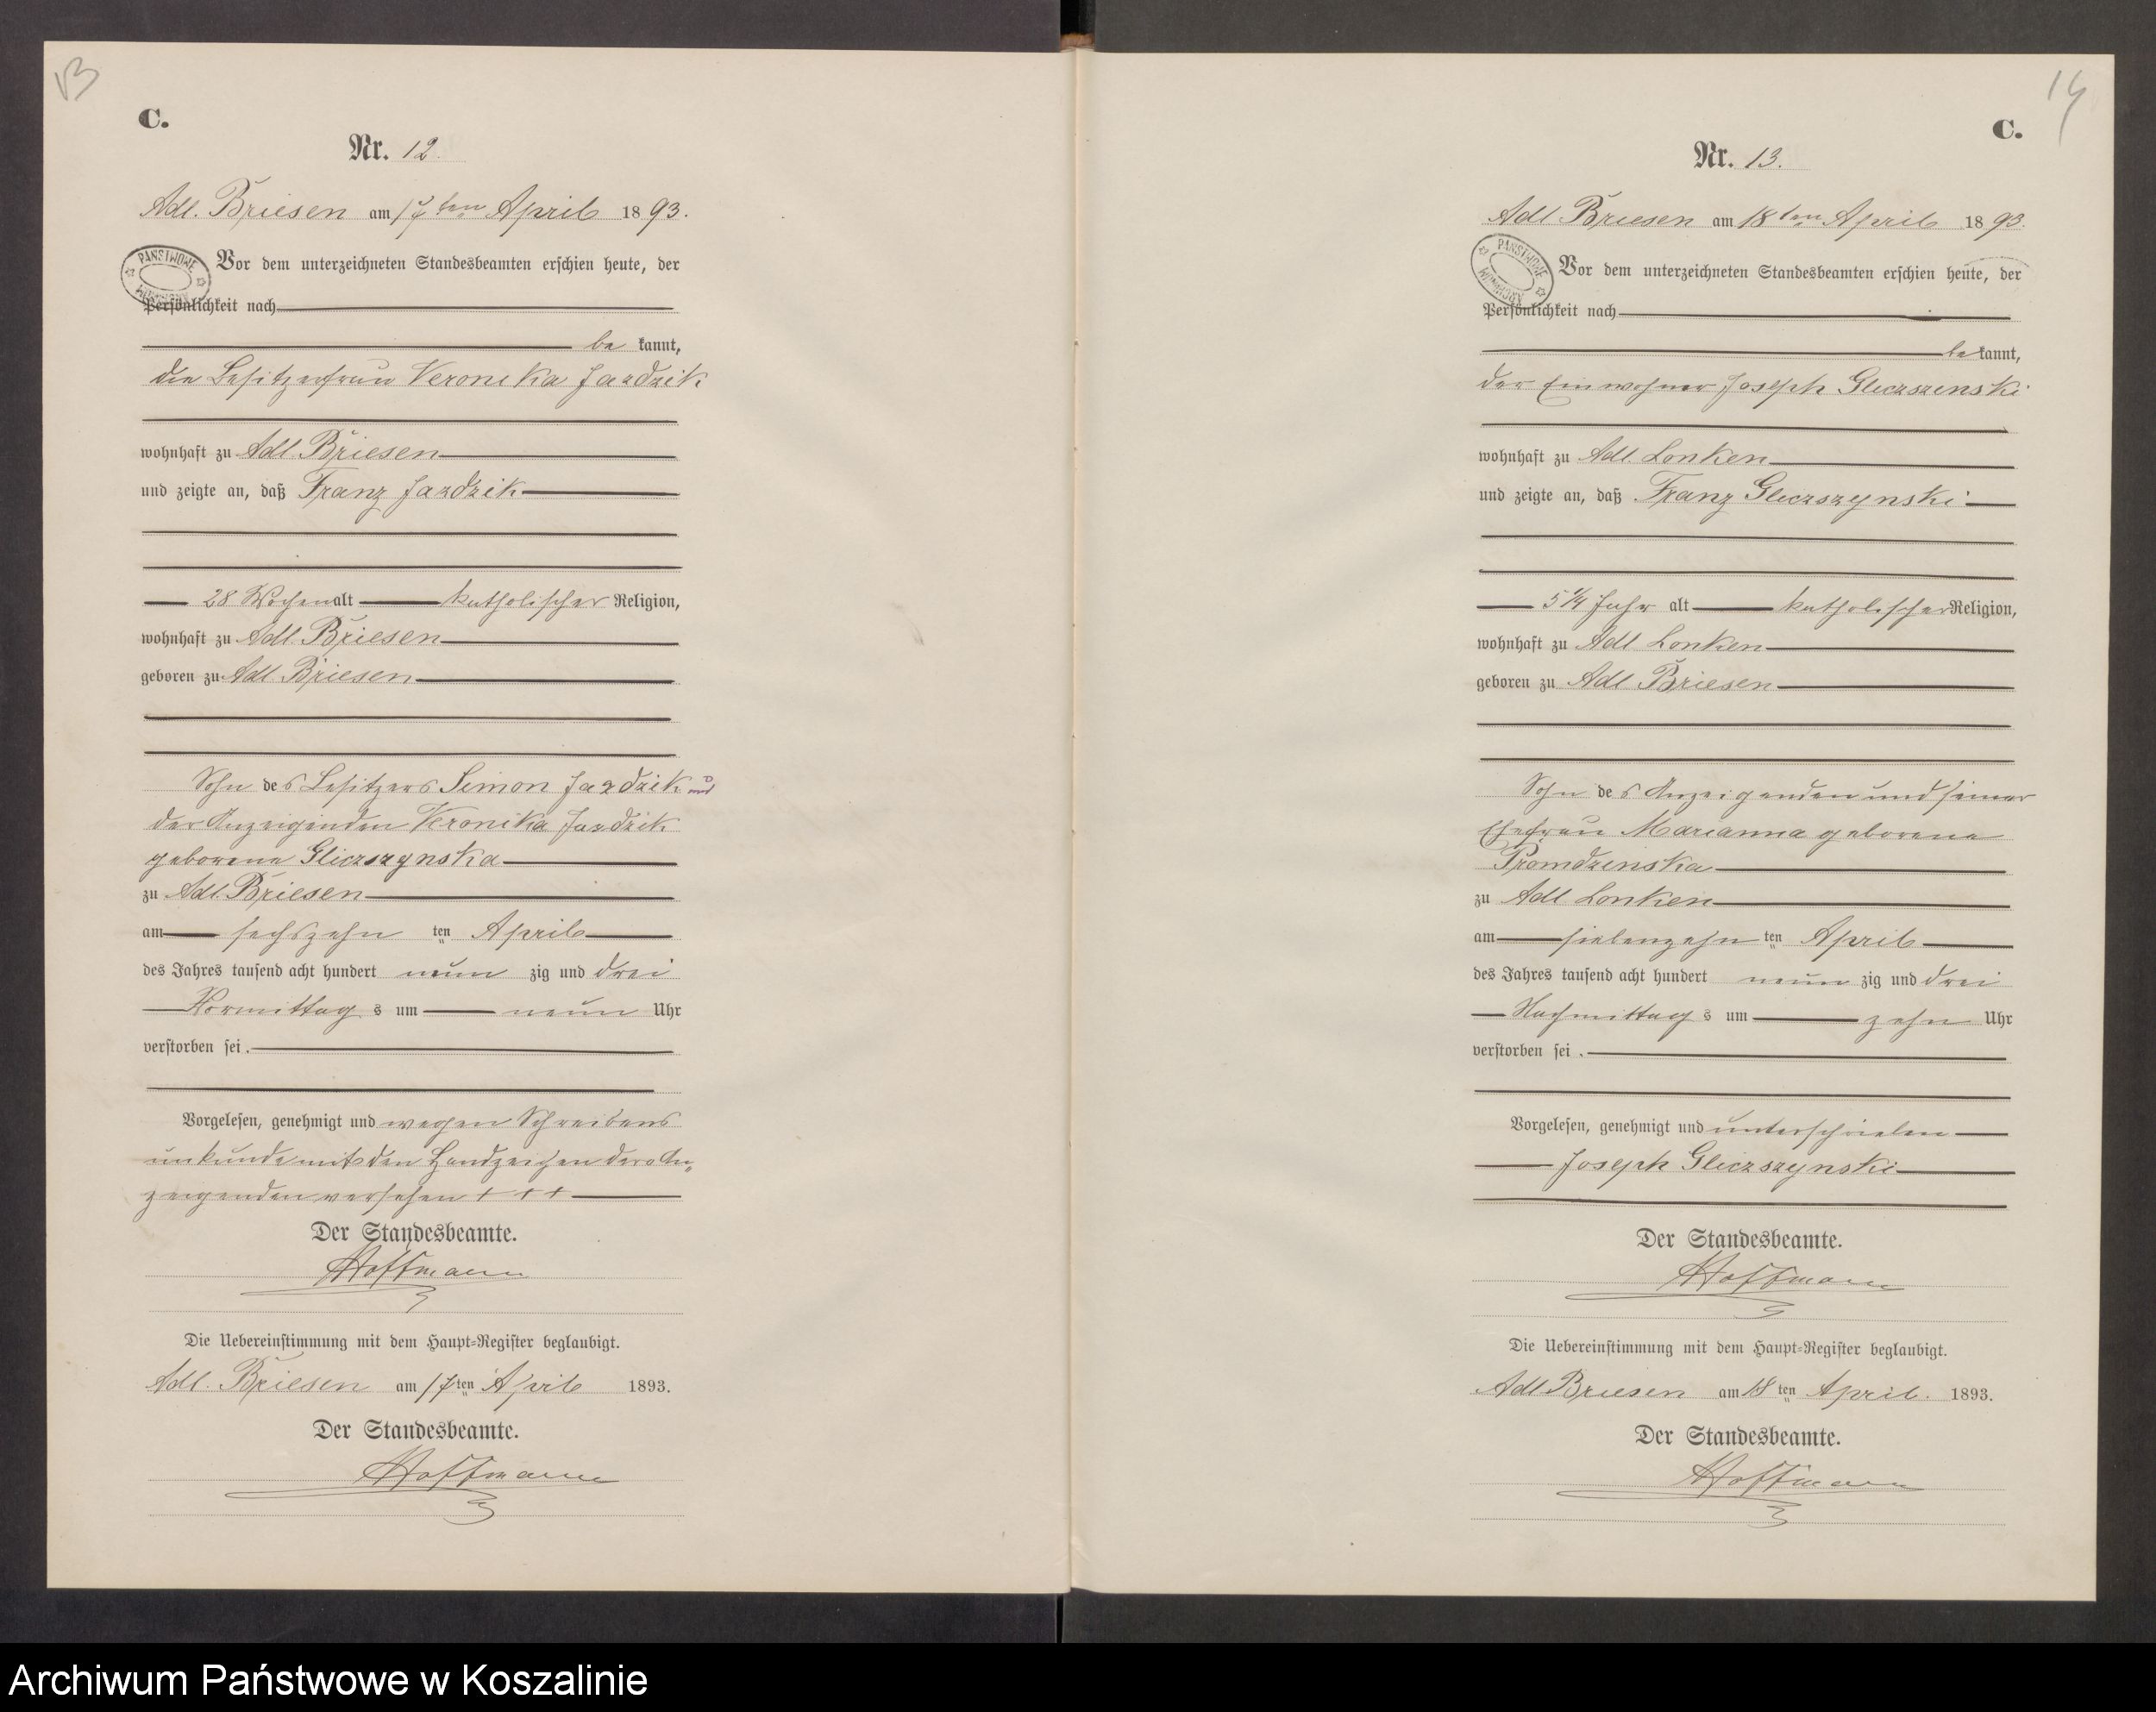 13
C.
Nr. 12.
Adl. Briesen am 17ten April 1893.
PAŃSTWOWE
ARCHIWUM
Vor dem unterzeichneten Standesbeamten erschien heute, der
Persönlichkeit nach
be kannt,
die Besitzerfrau Veronika Jazdzik
wohnhaft zu Adl. Briesen
und zeigte an, daß Franz Jazdzik
28 Wochen alt katholischer Religion,
wohnhaft zu Adl. Briesen
geboren zu Adl. Briesen
Sohn des Besitzers Simon Jazdzik und
der Anzeigenden Veronika Jazdzik
geborene Gliczszynska
zu Adl. Briesen
am sechszehn ten April
des Jahres tausend acht hundert neun zig und drei
Vormittag s um neun Uhr
verstorben sei.
Vorgelesen, genehmigt und wegen Schreibens
unkunde mit den Handzeichen der An„
zeigenden versehen + + +
Der Standesbeamte.
Hoffmann
Die Uebereinstimmung mit dem Haupt-Register beglaubigt.
Adl. Briesen am 17ten April 1893.
Der Standesbeamte.
Hoffmann
14
C.
Nr. 13.
Adl Briesen am 18ten April 1893.
PAŃSTWOWE
ARCHIWUM
Vor dem unterzeichneten Standesbeamten erschien heute, der
Persönlichkeit nach
be kannt,
der Einwohner Joseph Gliczszinski
wohnhaft zu Adl. Lonken
und zeigte an, daß Franz Gliczszynski
5 1/4 Jahr alt katholischer Religion,
wohnhaft zu Adl Lonken
geboren zu Adl Briesen
Sohn des Anzeigenden und seiner
Ehefrau Marianna geborene
Promdzinska
zu Adl Lonken
am siebenzehn ten April
des Jahres tausend acht hundert neun zig und drei
Nachmittag s um zehn Uhr
verstorben sei.
Vorgelesen, genehmigt und unterschrieben
Joseph Gliczszynski
Der Standesbeamte.
Hoffmann
Die Uebereinstimmung mit dem Haupt-Register beglaubigt.
Adl Briesen am 18 ten April. 1893.
Der Standesbeamte.
Hoffmann
Archiwum Państwowe w Koszalinie